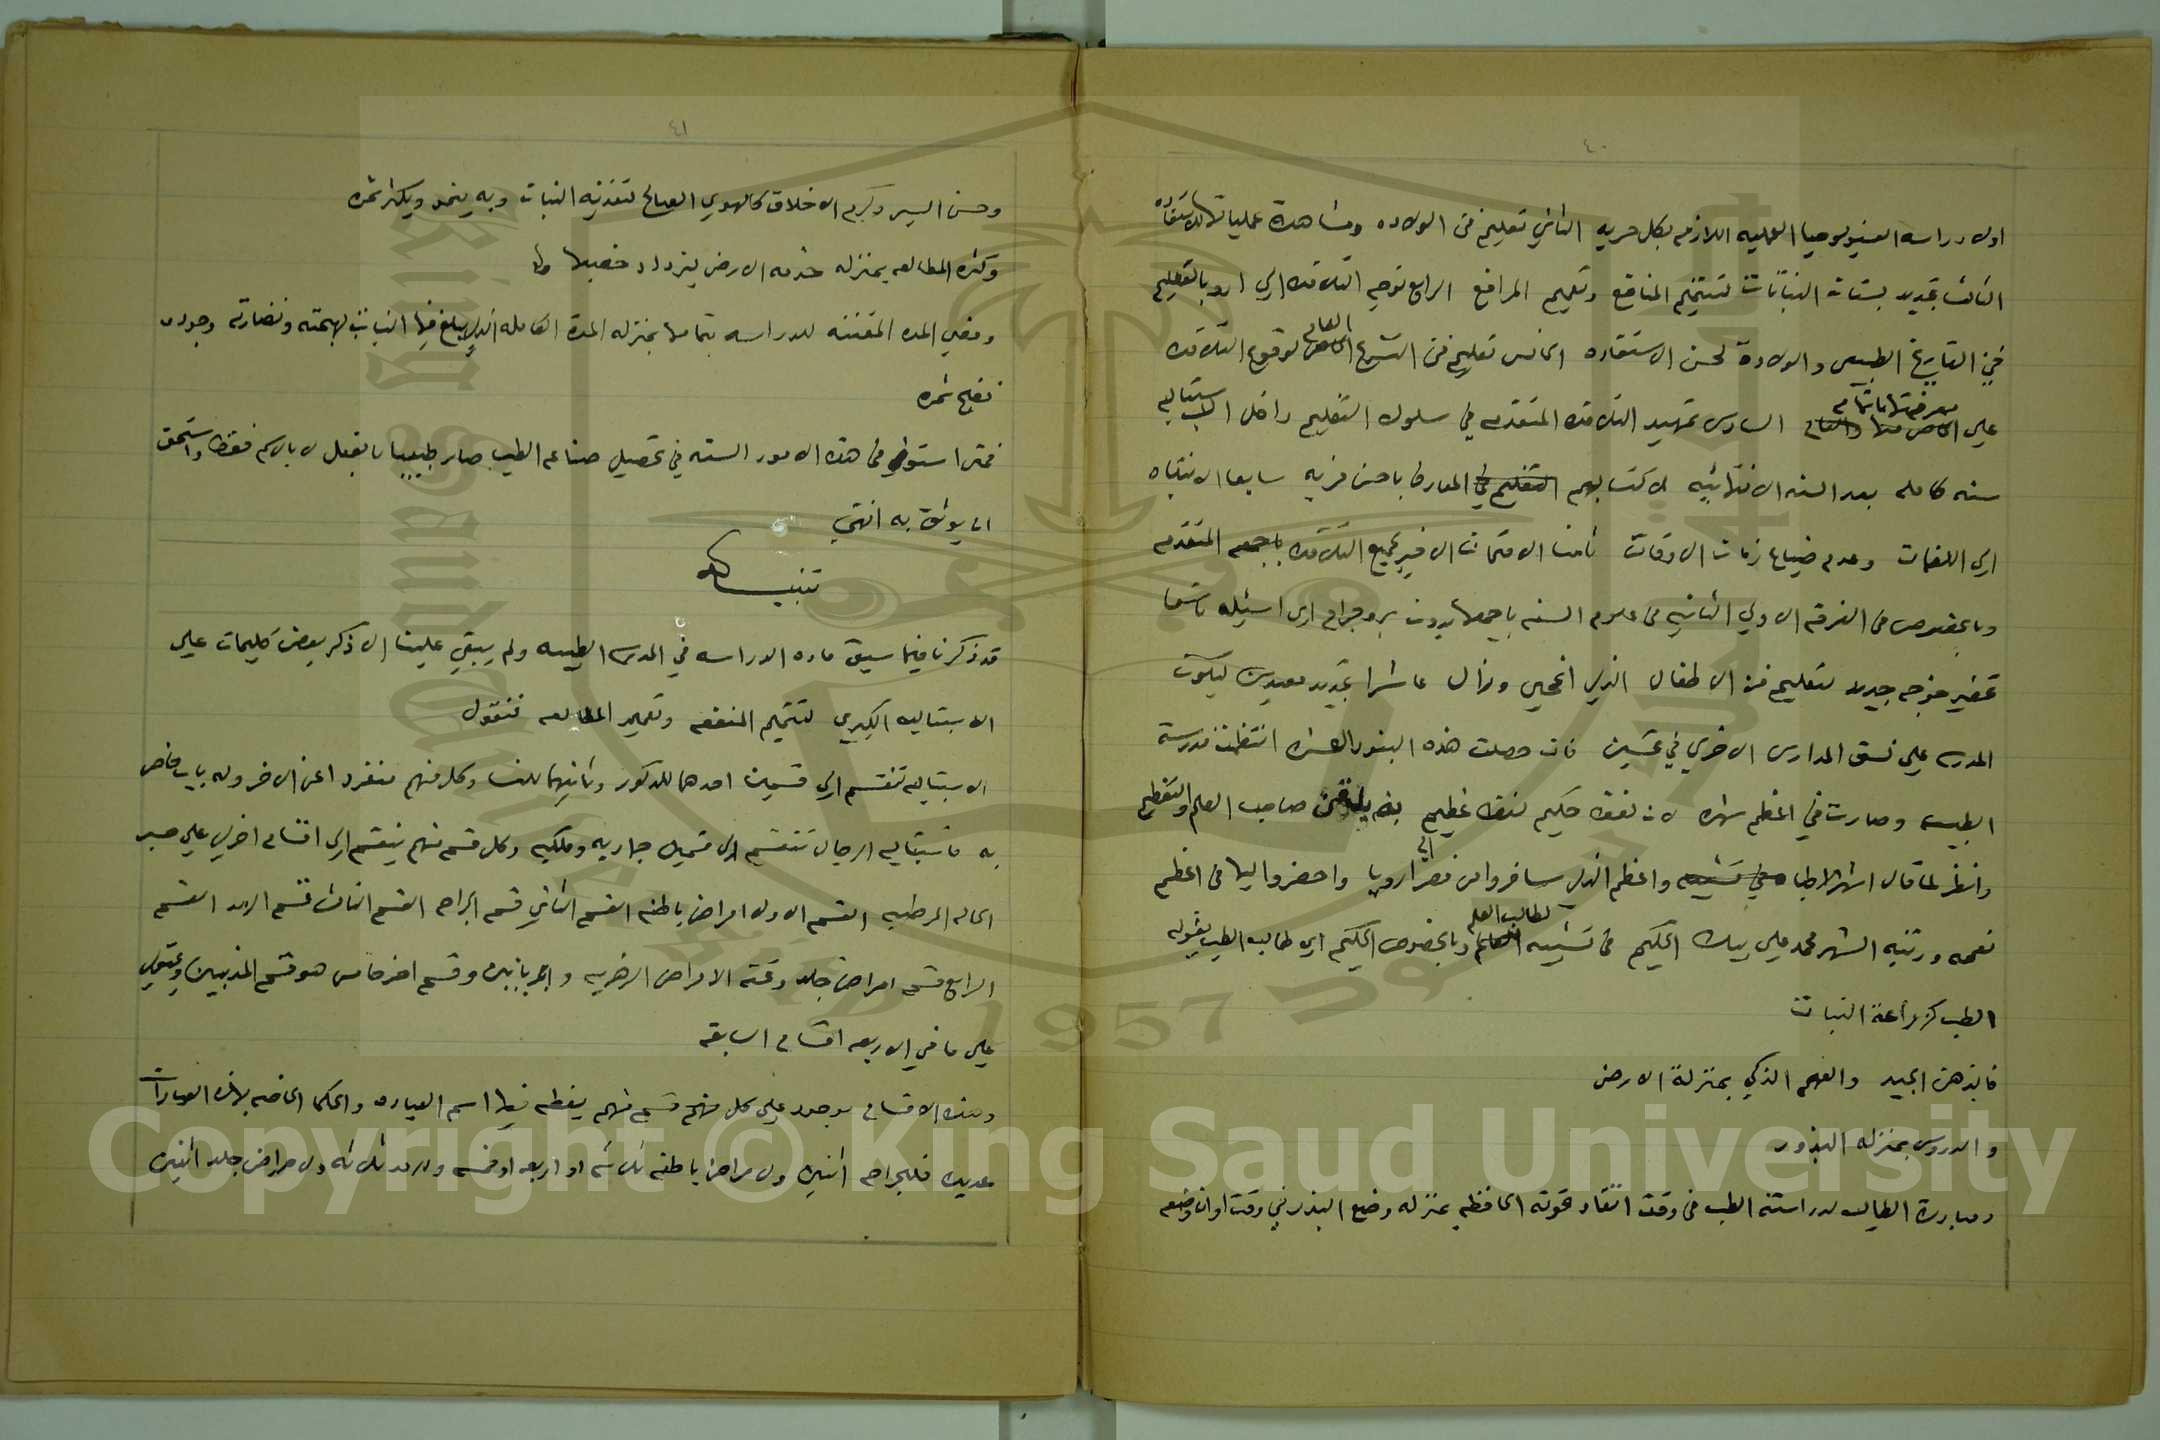 ٤٠
اولا دراسه الفسيولوجيا العمليه اللازمه بكل حريه الثاني تعليم فن الولاده ومشاهدة عملياتها للاستفاده
الثالث تجديد بستان النباتات لتتميم المنافع وتعميم المرافع الرابع توجيه التلامذه الي اروبا لتعليم
فن التاريخ الطبيعي والولادة لحسن الاستفاده الخامس تعليم فن التشريح الخاص العام لوقوع التلامذه
علي معرفتها بالتمام السادس تمهيد التلامذه المتقدمه في سلوك التعليم داخل الاسبتاليه
سنه كامله بعد السنه الانتهائيه لاكتسابهم المعارف باحسن مزيه سابعا الانتباه
الي اللغات وعدم ضياع زمان الاوقات ثامنا الامتحان الاخير لجميع التلامذه باجمعه المتقدمه
وبالخصوص من الفرقه الاولي الثانيه من علوم السنه باجمعها بدون بروجرام اي اسئله تاسعا
تحضير خوجه جديد لتعليم فن الاطفال الذي انمحي وزال عاشرا تجديد معيدين ليكون
المدرسه علي نسق المدارس الاخري في تحسين فان حصلت هذه البنود العشره انتظمت مدرسة
الطبيه وصارت في اعظم شهره لان لفظة حكيم لفظ عظيم صاحب العلم والتعظيم
وانظر لما قال اشهر الاطبا واعظم الذين سافروا من مصر الي اروبا واحضروا اليها من اعظم
نعمه ورتبه الشهر محمد علي بيك الحكيم من تشبيه لطالب العلم وبالخصوص الحكيم اي طالب الطب بقوله
الطب كزراعة النبات
فالذهن الجيد والفهم الذكي بمنزلة الارض
والدروس بمنزله البذور
ومبادرة الطالب لدراسته الطب في وقت اتقاد قوته الحافظه بمنزله وضع البذر في وقت اوان وضعه
٤١
وحسن السير وكرم الاخلاق كالهوي الصالح لتغذيه النبات وبه ينمو ويكثر ثمره
وكثره المطالعه بمنزله خدمه الارض ليزداد خصبها
ومضي المده المقننه للدراسه بتمامها بمنزله المدة الكامله الذي يبلغ فيها النبات بهجته ونضارته وجوده
نضج ثمره
فمتي استوفي من هذه الامور السته في تحصيل صناعه الطب صار طبيبا بالفعل لا بالاسم فقط واستحق
ان يوثق به انتهي
تنبيه
قد ذكرنا فيما سبق ماده الدراسه في المدرسه الطبيه ولم يبقي علينا الا ذكر بعض كليمات علي
الاسبتاليه الكبري لتتميم المنفعه وتعميم المطالعه فنقول
الاسبتاليه تنقسم الي قسمين احدهما للذكور وثانيهما للنسا وكل منهم منفرد اعن الاخر وله باب خاص
به فاسبتاليه الرجال تنقسم الي قسمين جهاديه وملكيه وكل قسم منهم ينقسم الي اقسام اخري علي حسب
الحاله المرضيه القسم الاول امراض باطنه القسم الثاني قسم الجراحه القسم الثالث قسم الرمد القسم
الرابع قسم امراض جلد وتحته الامراض الزهريه والجربانين وقسم اخر خامس هو قسم المذنبين ويحتوي
علي ما في الاربعه اقسام السابقه
وهذه الاقسام موجود علي كل قسم منهم يفطه فيها اسم العياده والحكما الخاصه بهذه العيادات
عديده فللجراحه اثنين ولامراض باطنه ثلاثه او اربعه او خمسه وللرمد ثلاثه ولامراض جلد اثنين
Copyright © King Saud University
1957